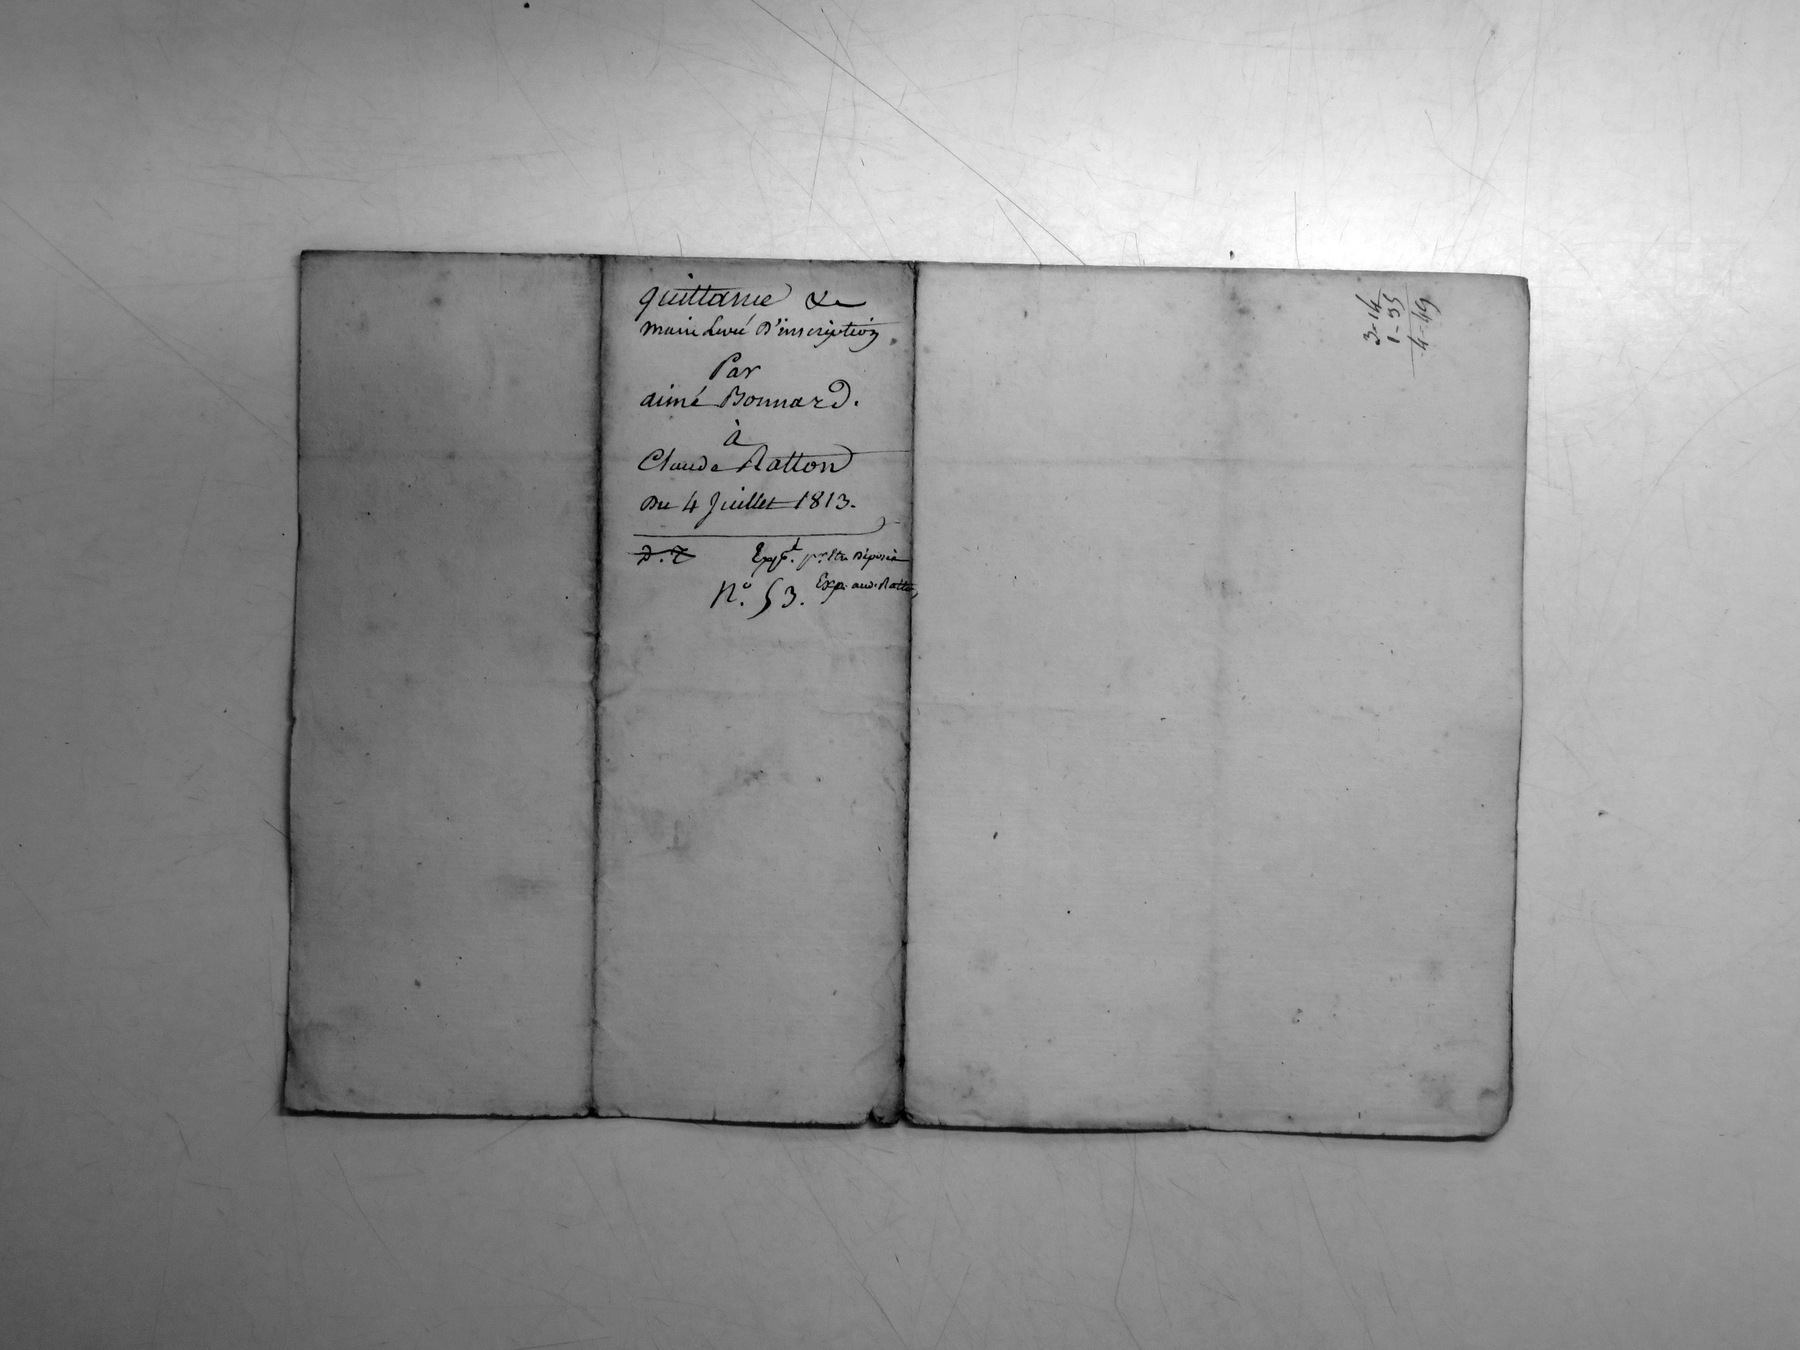 quittance &
main Levée D'inscription
Par
aimé Bonnard.
à
Claude Ratton
Du 4 Juillet 1813.
D. T
Expt. pr. Etre Déposée
Exp. aud. Ratton
N.° 53.
3-14
1-35
4-49